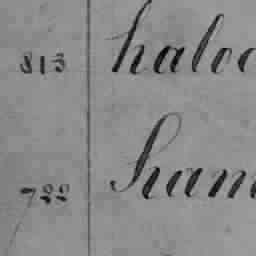 813 haloc
722 ham